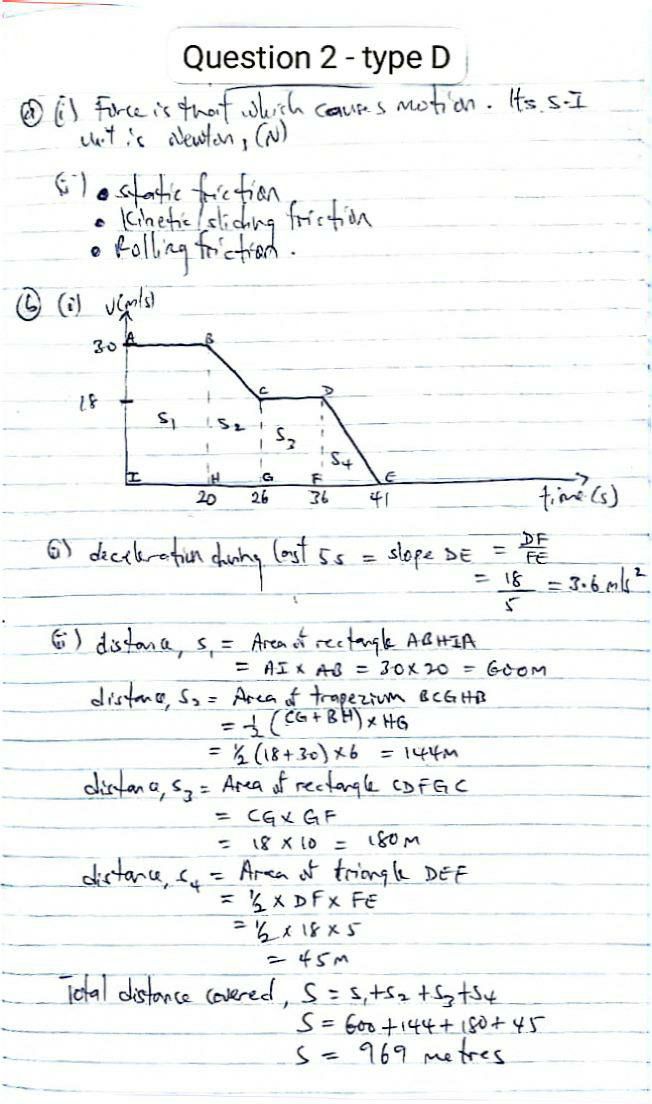 Question 2 - type D
(a) (i) Force is that which causes motion. Its S.I
unit is Newton, (N)
(ii) • static friction
• Kinetic/sliding friction
• Rolling friction.
(b) (i) V(m/s)
30 A B
18 C D
S1 S2 S3 S4
I H G F E
20 26 36 41 time (s)
ii) deceleration during last 5s = slope DE = DF/FE
= 18/5 = 3.6 m/s²
iii) distance, S1 = Area of rectangle ABHIA
= AI × AB = 30 × 20 = 600M
distance, S2 = Area of trapezium BCGHB
= ½ (CG + BH) × HG
= ½ (18 + 30) × 6 = 144M
distance, S3 = Area of rectangle CDFGC
= CG × GF
= 18 × 10 = 180M
distance, S4 = Area of triangle DEF
= ½ × DF × FE
= ½ × 18 × 5
= 45M
Total distance covered, S = S1 + S2 + S3 + S4
S = 600 + 144 + 180 + 45
S = 969 metres